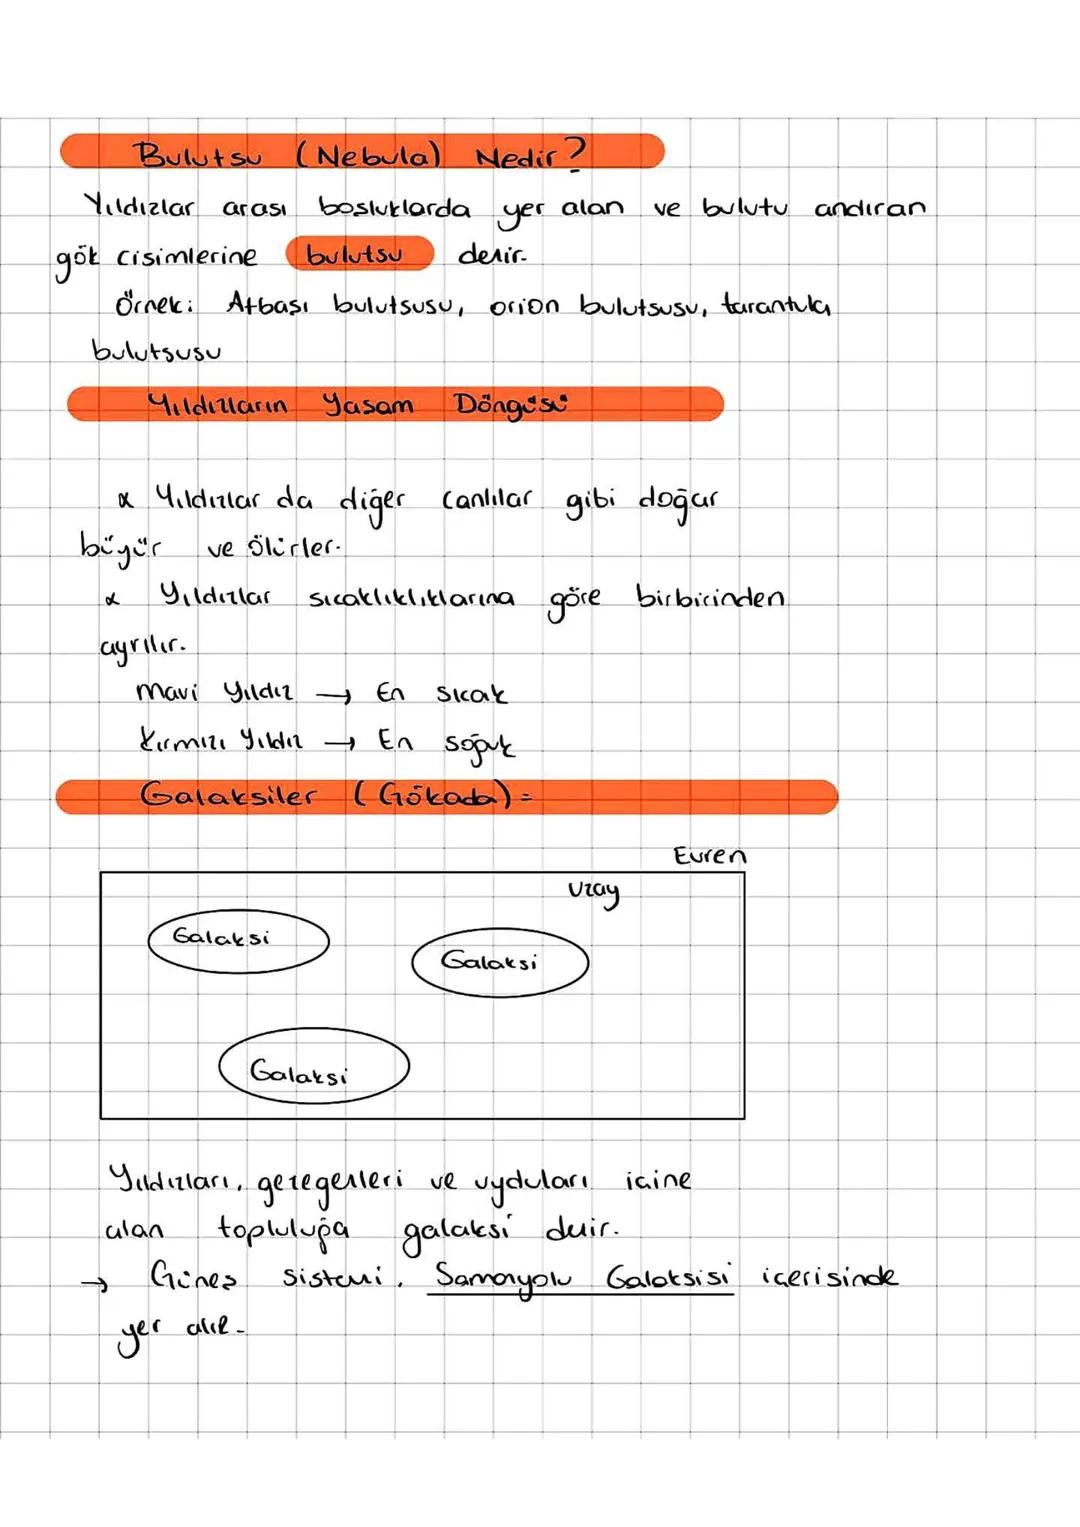 Bulutsu (Nebula) Nedir?
Yıldızlar arası bosluklarda yer alan ve bulutu andıran
gök cisimlerine bulutsu denir.
Örnek: Atbası bulutsusu, orion bulutsusu, tarantula
bulutsusu
Yıldızların Yasam Döngüsü
α Yıldızlar da diğer canlılar gibi doğar
büyür ve ölürler.
α Yıldızlar sıcaklıklıklarına göre birbirinden
ayrılır.
Mavi Yıldız → En sıcak
Kırmızı Yıldız → En soğuk
Galaksiler (Gökada)=
Evren
Uzay
Galaksi
Galaksi
Galaksi
Yıldızları, gezegenleri ve uyduları icine
alan topluluğa galaksi denir.
→ Günes sistemi, Samanyolu Galaksisi içerisinde
yer alır.